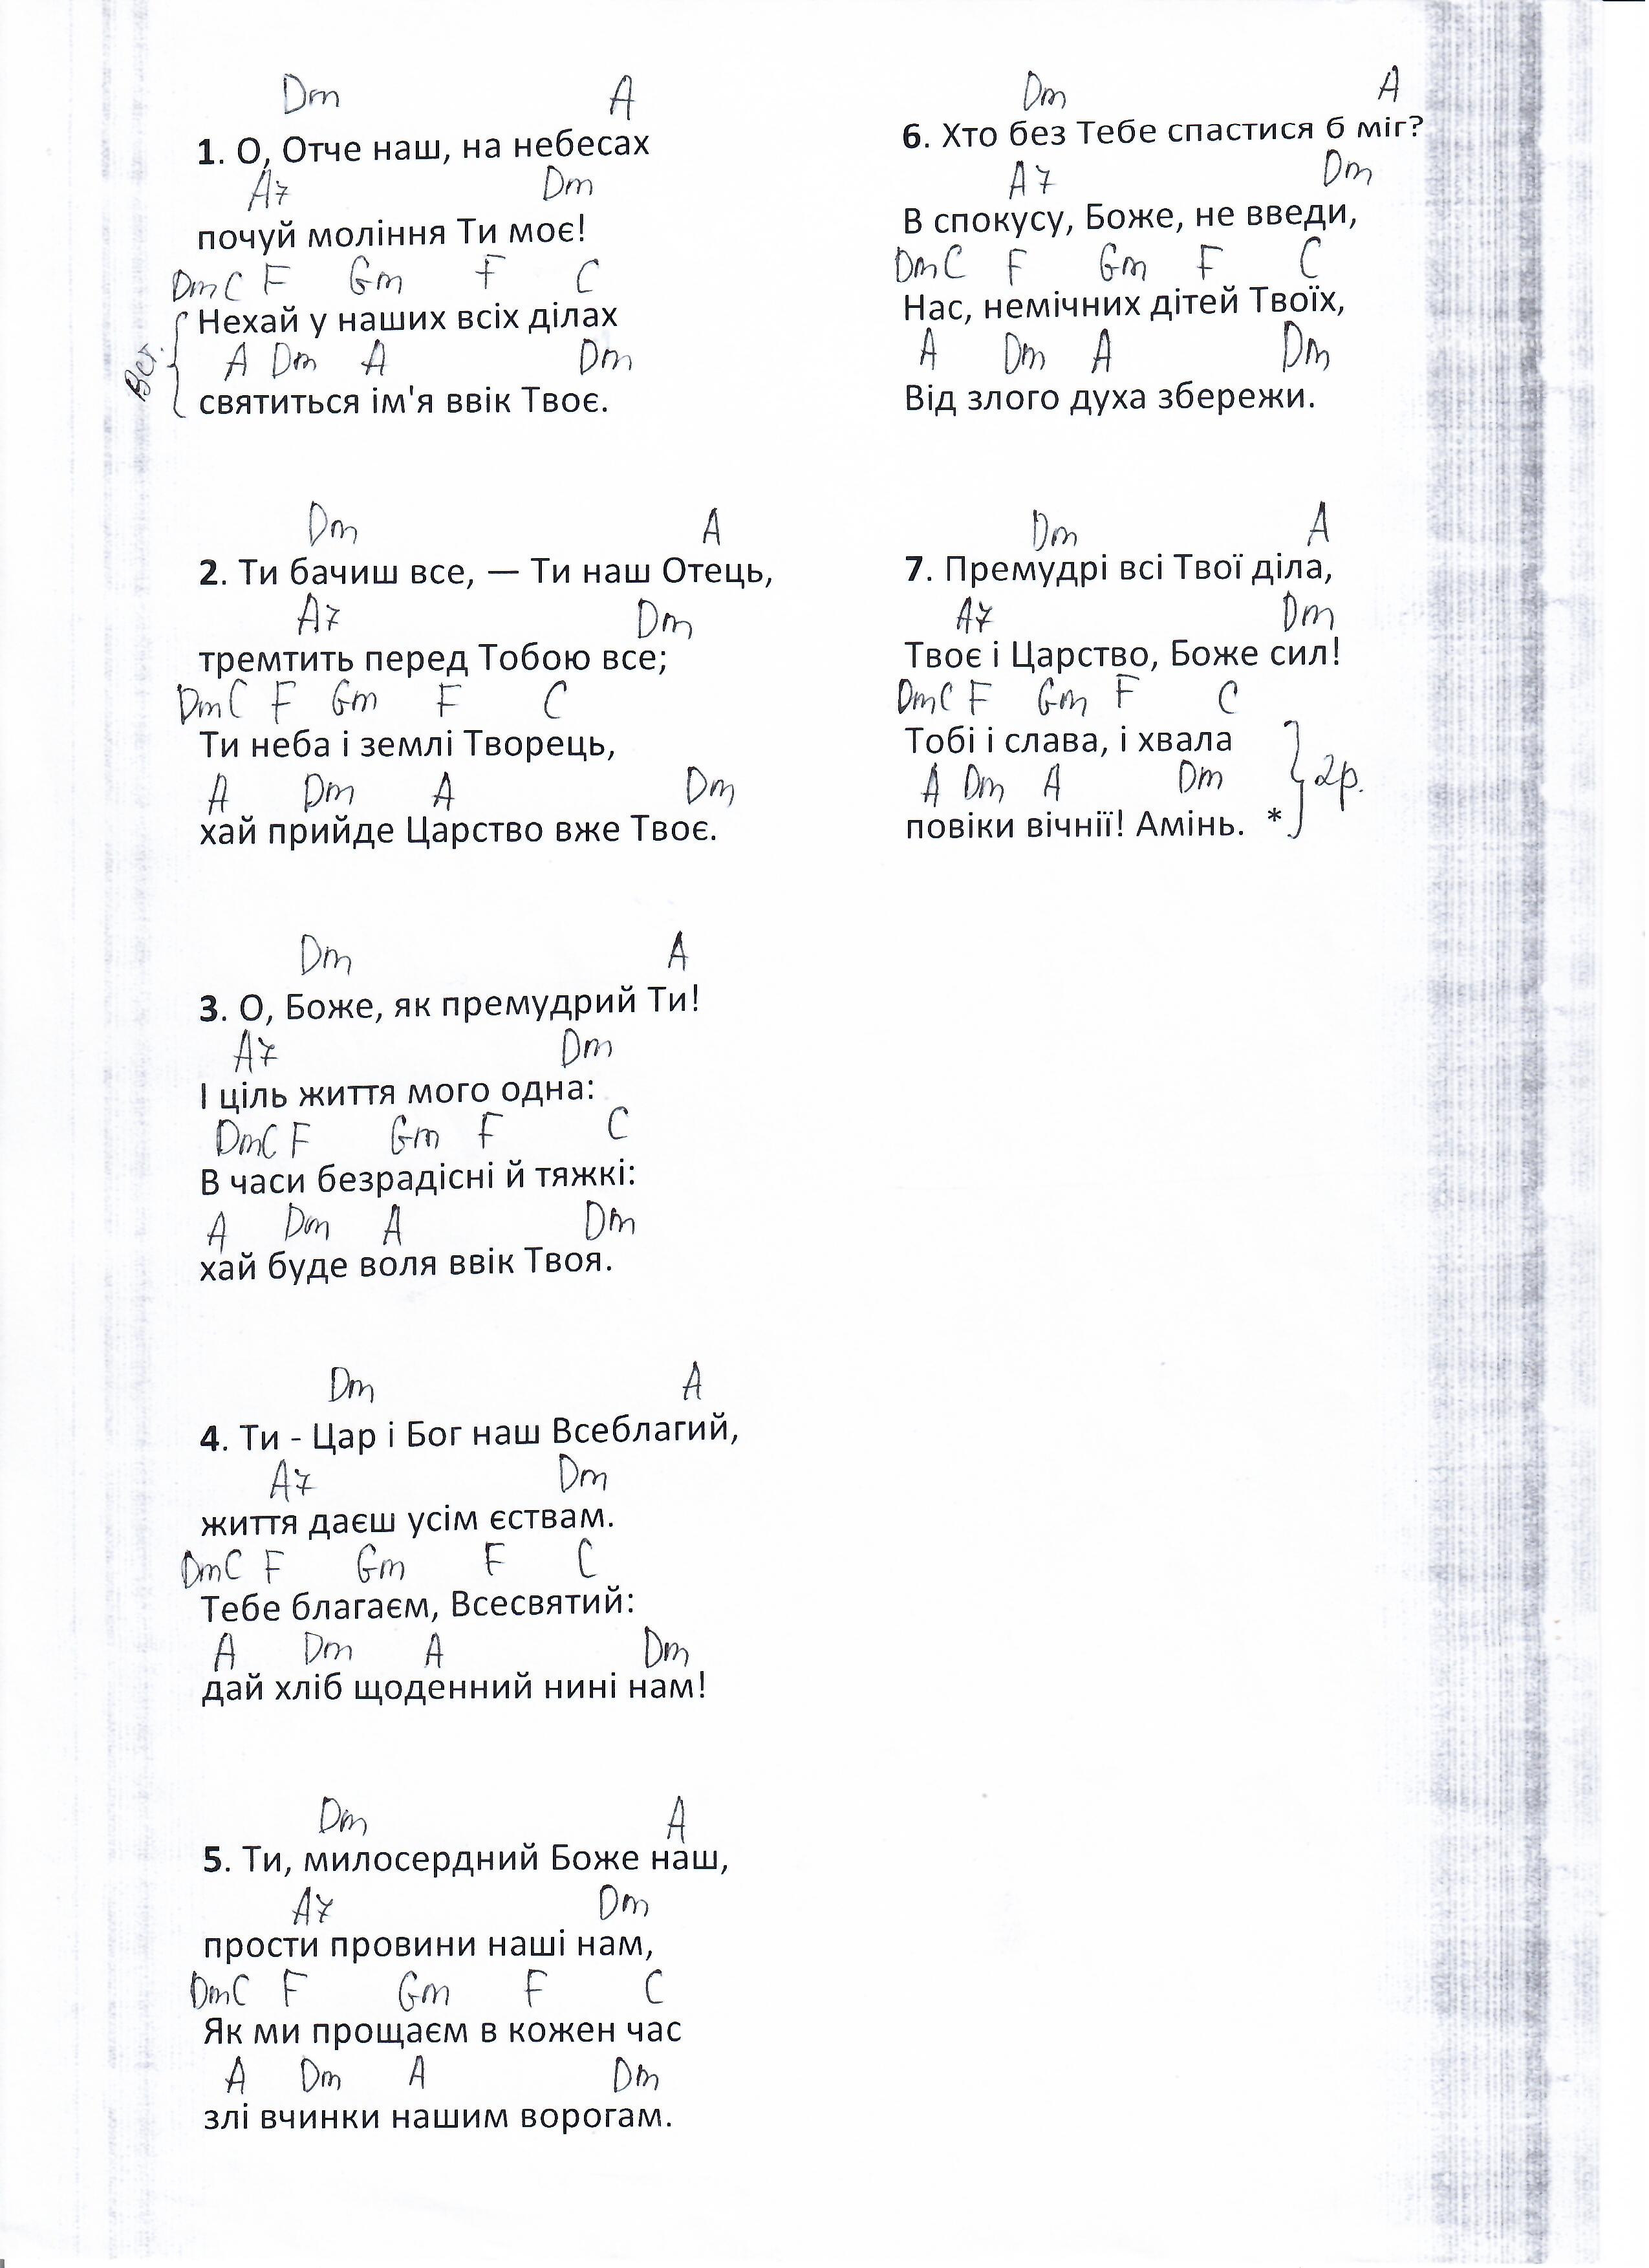 Dm A
1. О, Отче наш, на небесах
A7 Dm
почуй моління Ти моє!
Dm C F Gm F C
Нехай у наших всіх ділах
Вст. A Dm A Dm
святиться ім'я ввік Твоє.
Dm A
2. Ти бачиш все, — Ти наш Отець,
A7 Dm
тремтить перед Тобою все;
Dm C F Gm F C
Ти неба і землі Творець,
A Dm A Dm
хай прийде Царство вже Твоє.
Dm A
3. О, Боже, як премудрий Ти!
A7 Dm
І ціль життя мого одна:
Dm C F Gm F C
В часи безрадісні й тяжкі:
A Dm A Dm
хай буде воля ввік Твоя.
Dm A
4. Ти - Цар і Бог наш Всеблагий,
A7 Dm
життя даєш усім єствам.
Dm C F Gm F C
Тебе благаєм, Всесвятий:
A Dm A Dm
дай хліб щоденний нині нам!
Dm A
5. Ти, милосердний Боже наш,
A7 Dm
прости провини наші нам,
Dm C F Gm F C
Як ми прощаєм в кожен час
A Dm A Dm
злі вчинки нашим ворогам.
Dm A
6. Хто без Тебе спастися б міг?
A7 Dm
В спокусу, Боже, не введи,
Dm C F Gm F C
Нас, немічних дітей Твоїх,
A Dm A Dm
Від злого духа збережи.
Dm A
7. Премудрі всі Твої діла,
A7 Dm
Твоє і Царство, Боже сил!
Dm C F Gm F C
Тобі і слава, і хвала
A Dm A Dm 2р.
повіки вічнії! Амінь. *